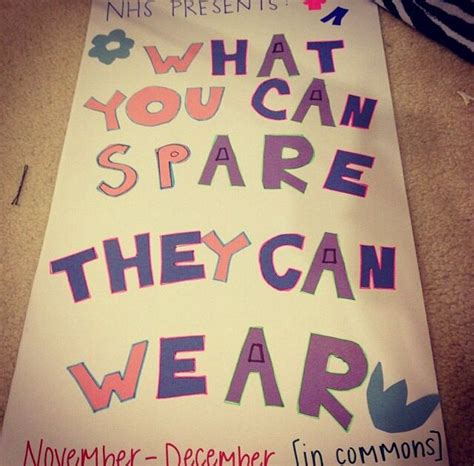 NHS PRESENTS:
WHAT
YOU CAN
SPARE
THEY CAN
WEAR
November - December [in commons]